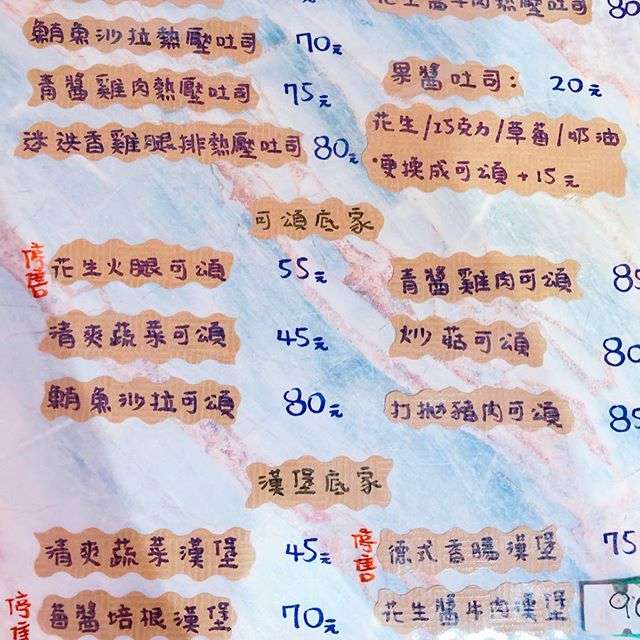 花生醬牛肉熱壓吐司
鮪魚沙拉熱壓吐司 70元
果醬吐司: 20元
青醬雞肉熱壓吐司 75元
花生/巧克力/草莓/奶油
迷迭香雞腿排熱壓吐司 80元
·更換成可頌 +15元
可頌底家
停售 花生火腿可頌 55元
青醬雞肉可頌
清爽蔬菜可頌 45元
炒菇可頌
鮪魚沙拉可頌 80元
打拋豬肉可頌
漢堡底家
清爽蔬菜漢堡 45元
停售 德式香腸漢堡 75
停售 莓醬培根漢堡 70元
花生醬牛肉漢堡